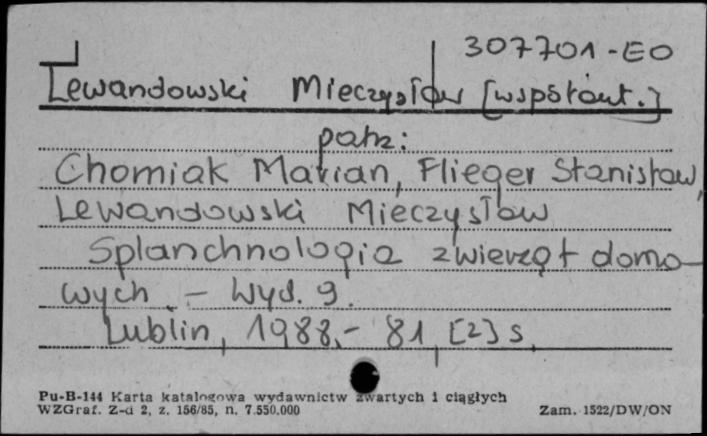 307701-EO
Lewandowski Mieczysław [współaut.]
patrz:
Chomiak Marian, Flieger Stanisław,
Lewandowski Mieczysław
Splanchnologia zwierząt domo-
wych. - Wyd. 9.
Lublin, 1988.- 81, [2] s.
Pu-B-144 Karta katalogowa wydawnictw zwartych i ciągłych
WZGraf. Z-d 2, z. 156/85, n. 7.550.000 Zam. 1522/DW/ON